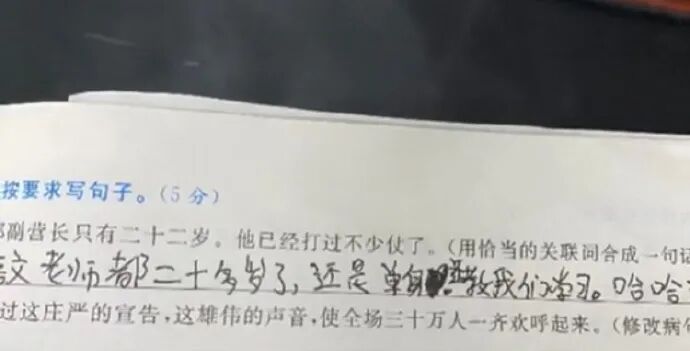 按要求写句子。(5分)
副营长只有二十二岁。他已经打过不少仗了。(用恰当的关联词合成一句话
文老师都二十多岁了,还是单身 教我们学习。哈哈
过这庄严的宣告,这雄伟的声音,使全场三十万人一齐欢呼起来。(修改病